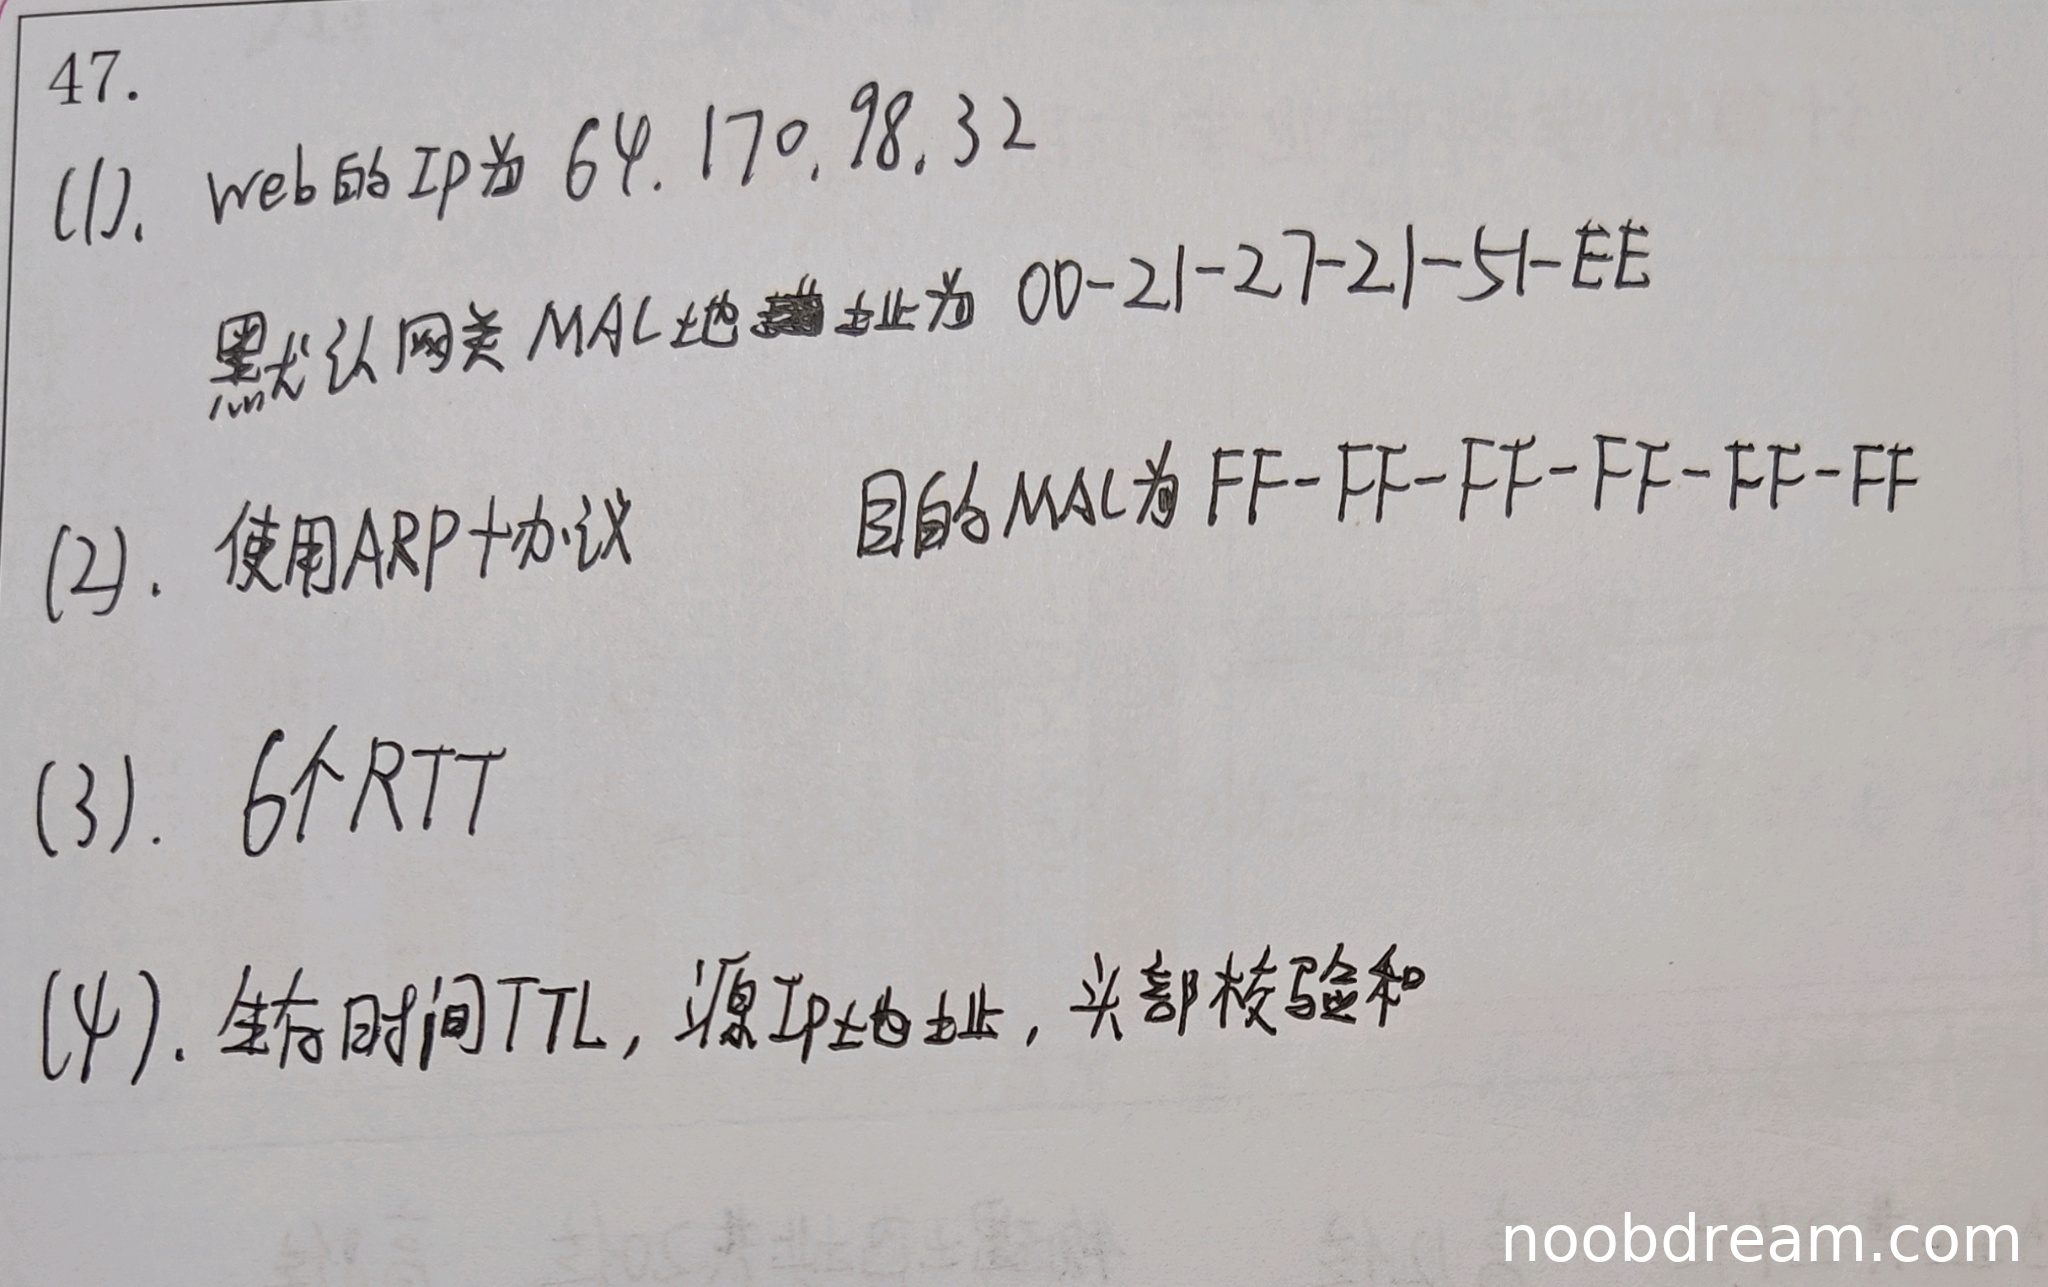 47.
(1). web的Ip为 64.170.98.32
默认网关MAC地址为 00-21-27-21-51-EE
(2). 使用ARP协议 目的MAC为 FF-FF-FF-FF-FF-FF
(3). 6个RTT
(4). 生存时间TTL, 源Ip地址, 头部校验和
noobdream.com